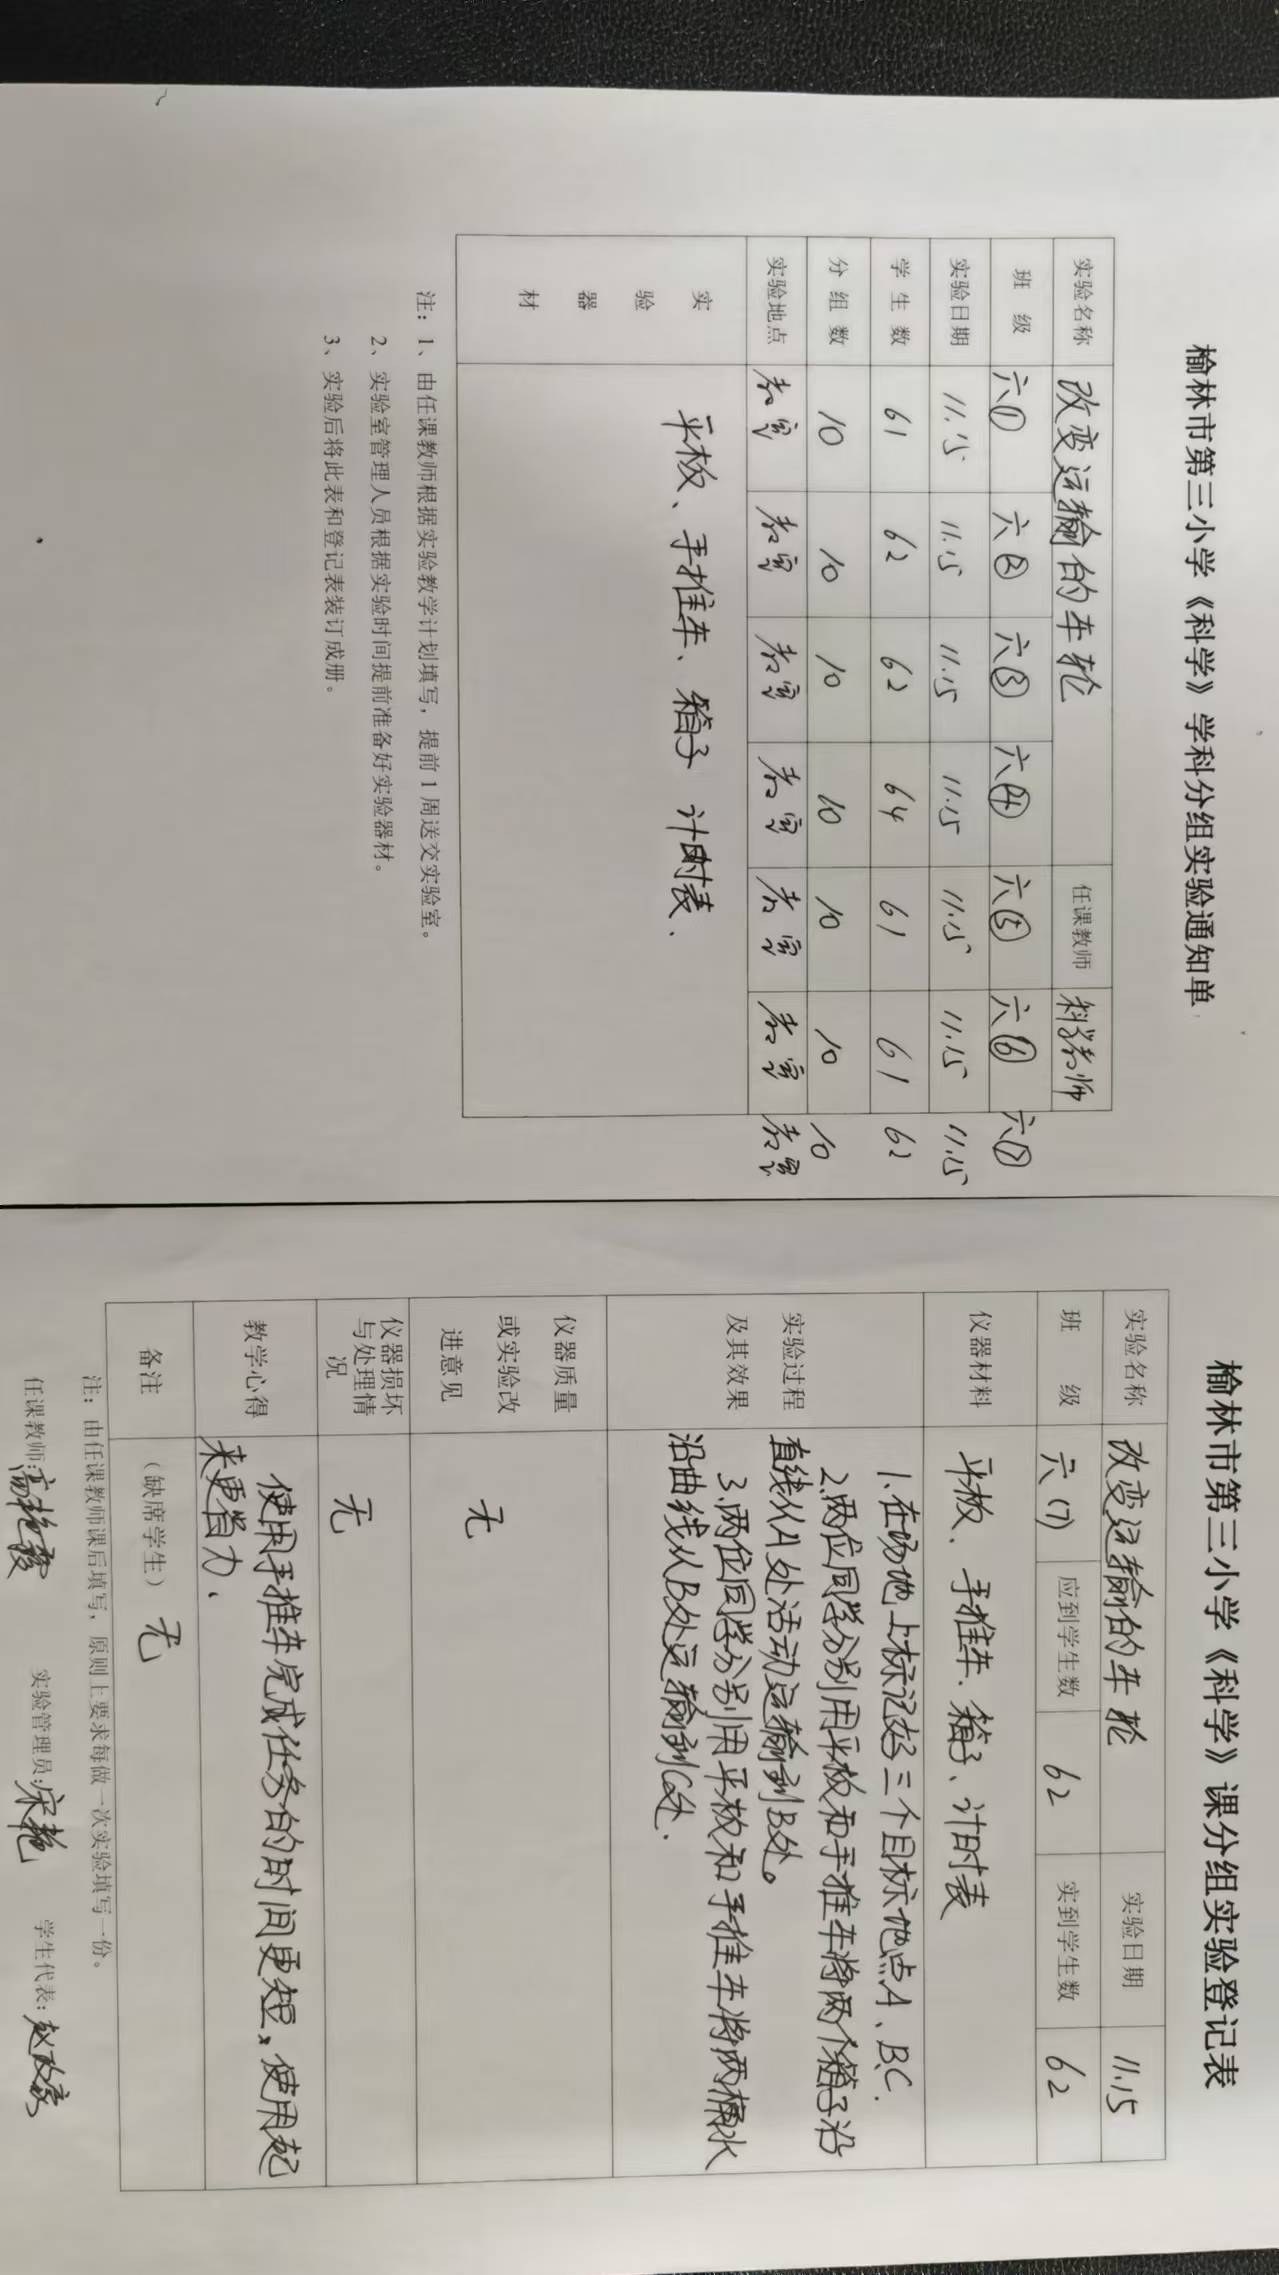 榆林市第三小学《科学》学科分组实验通知单
实验名称 改变运输的车轮 任课教师 科学老师
班级 六① 六② 六③ 六④ 六⑤ 六⑥ 六⑦
实验日期 11.15 11.15 11.15 11.15 11.15 11.15 11.15
学生数 61 62 62 64 61 61 62
分组数 10 10 10 10 10 10 10
实验地点 教室 教室 教室 教室 教室 教室 教室
实验器材 平板、手推车、箱子 计时表、
注：1、由任课教师根据实验教学计划填写，提前1周送交实验室。
2、实验室管理人员根据实验时间提前准备好实验器材。
3、实验后将此表和登记表装订成册。
榆林市第三小学《科学》课分组实验登记表
实验名称 改变运输的车轮 实验日期 11.15
班级 六(7) 应到学生数 62 实到学生数 62
仪器材料 平板、手推车、箱子、计时表
实验过程及其效果
1.在场地上标记好三个目标地点A、B、C.
2.两位同学分别用平板和手推车将两个箱子沿
直线从A处活动运输到B处。
3.两位同学分别用平板和手推车将两桶水
沿曲线从B处运输到C处.
仪器质量或实验改进意见 无
仪器损坏与处理情况 无
教学心得 使用手推车完成任务的时间更短,使用起
来更省力、
备注 （缺席学生）无
注：由任课教师课后填写，原则上要求每做一次实验填写一份。
任课教师: 高艳霞 实验管理员: 宋艳 学生代表: